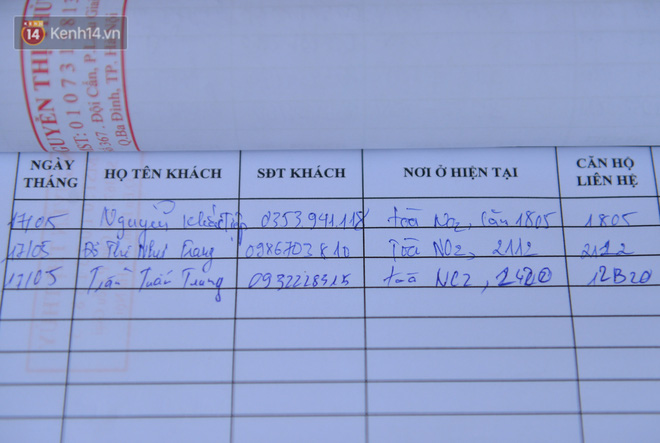 14 Kenh14.vn
NGUYỄN THỊ
MST: 01073181
367. Đội Cấn, P.
Q.Ba Đình, TP. Hà Nội
NGÀY THÁNG HỌ TÊN KHÁCH SĐT KHÁCH NƠI Ở HIỆN TẠI CĂN HỘ LIÊN HỆ
17/05 Nguyễn Khắc 0353.941.118 toà No2, Căn 1805 1805
17/05 Đỗ Thị Như Trang 0986703810 Toà NO2, 2112 2112
17/05 Trần Tuấn Trung 0932228515 toà NO2, 12B20